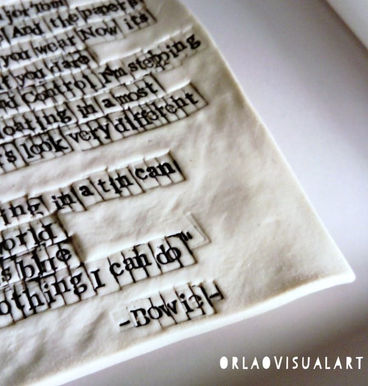 And the papers
you wear Now it's
you dare
d Control I'm stepping
loating in a most
s look very different
ing in a tin can
orld
s blue
othing I can do"
-Bowie-
ORLAOVISUALART